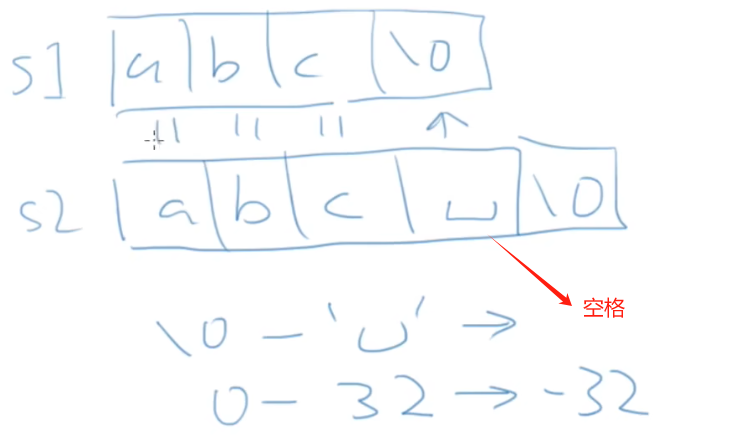 s1 a b c \0
s2 a b c ␣ \0
空格
\0 - '␣' →
0 - 32 → -32